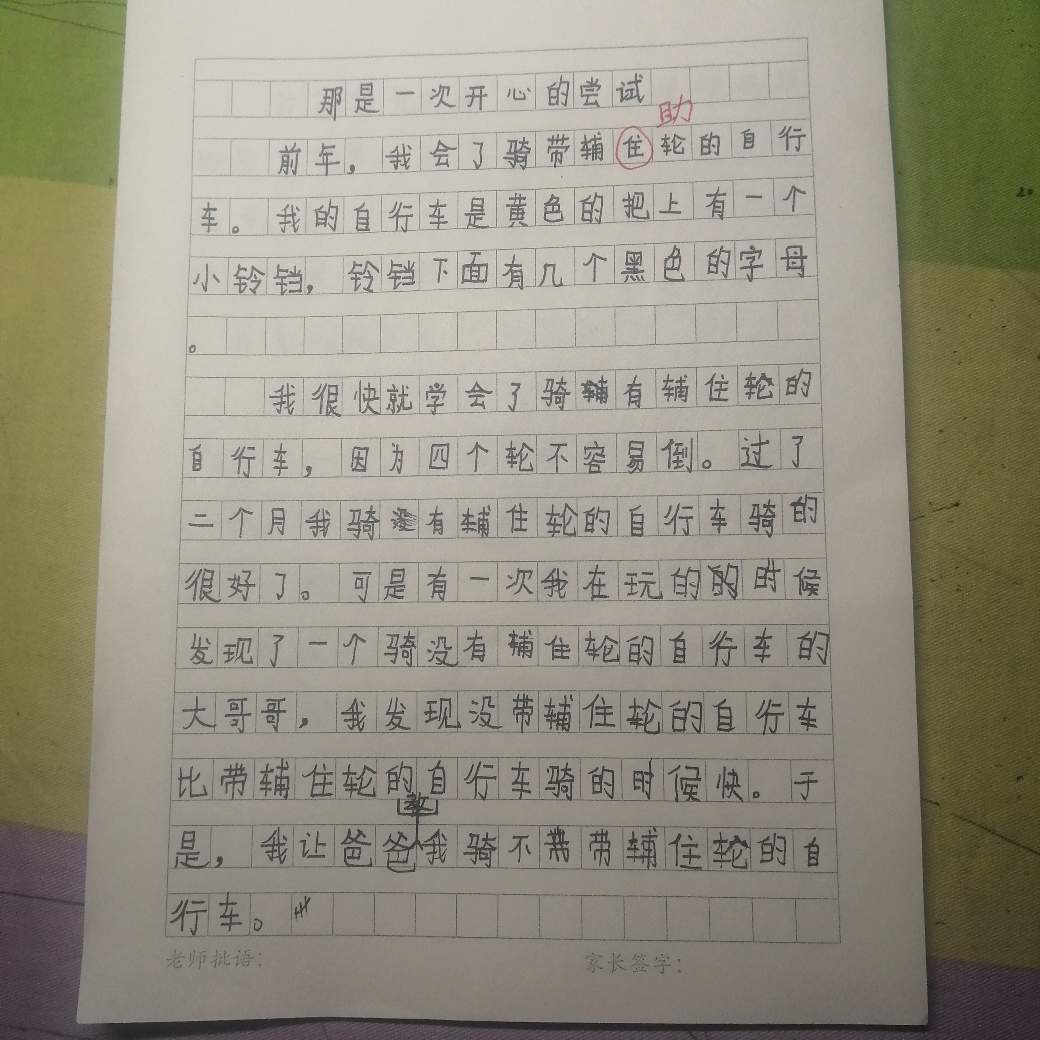 那是一次开心的尝试
助
前年，我会了骑带辅住轮的自行
车。我的自行车是黄色的把上有一个
小铃铛，铃铛下面有几个黑色的字母
。
我很快就学会了骑辅有辅住轮的
自行车，因为四个轮不容易倒。过了
二个月我骑没有辅住轮的自行车骑的
很好了。可是有一次我在玩的的时候
发现了一个骑没有辅住轮的自行车的
大哥哥，我发现没带辅住轮的自行车
比带辅住轮的自行车骑的时候快。于
教
是，我让爸爸我骑不带带辅住轮的自
行车。
老师批语：家长签字：